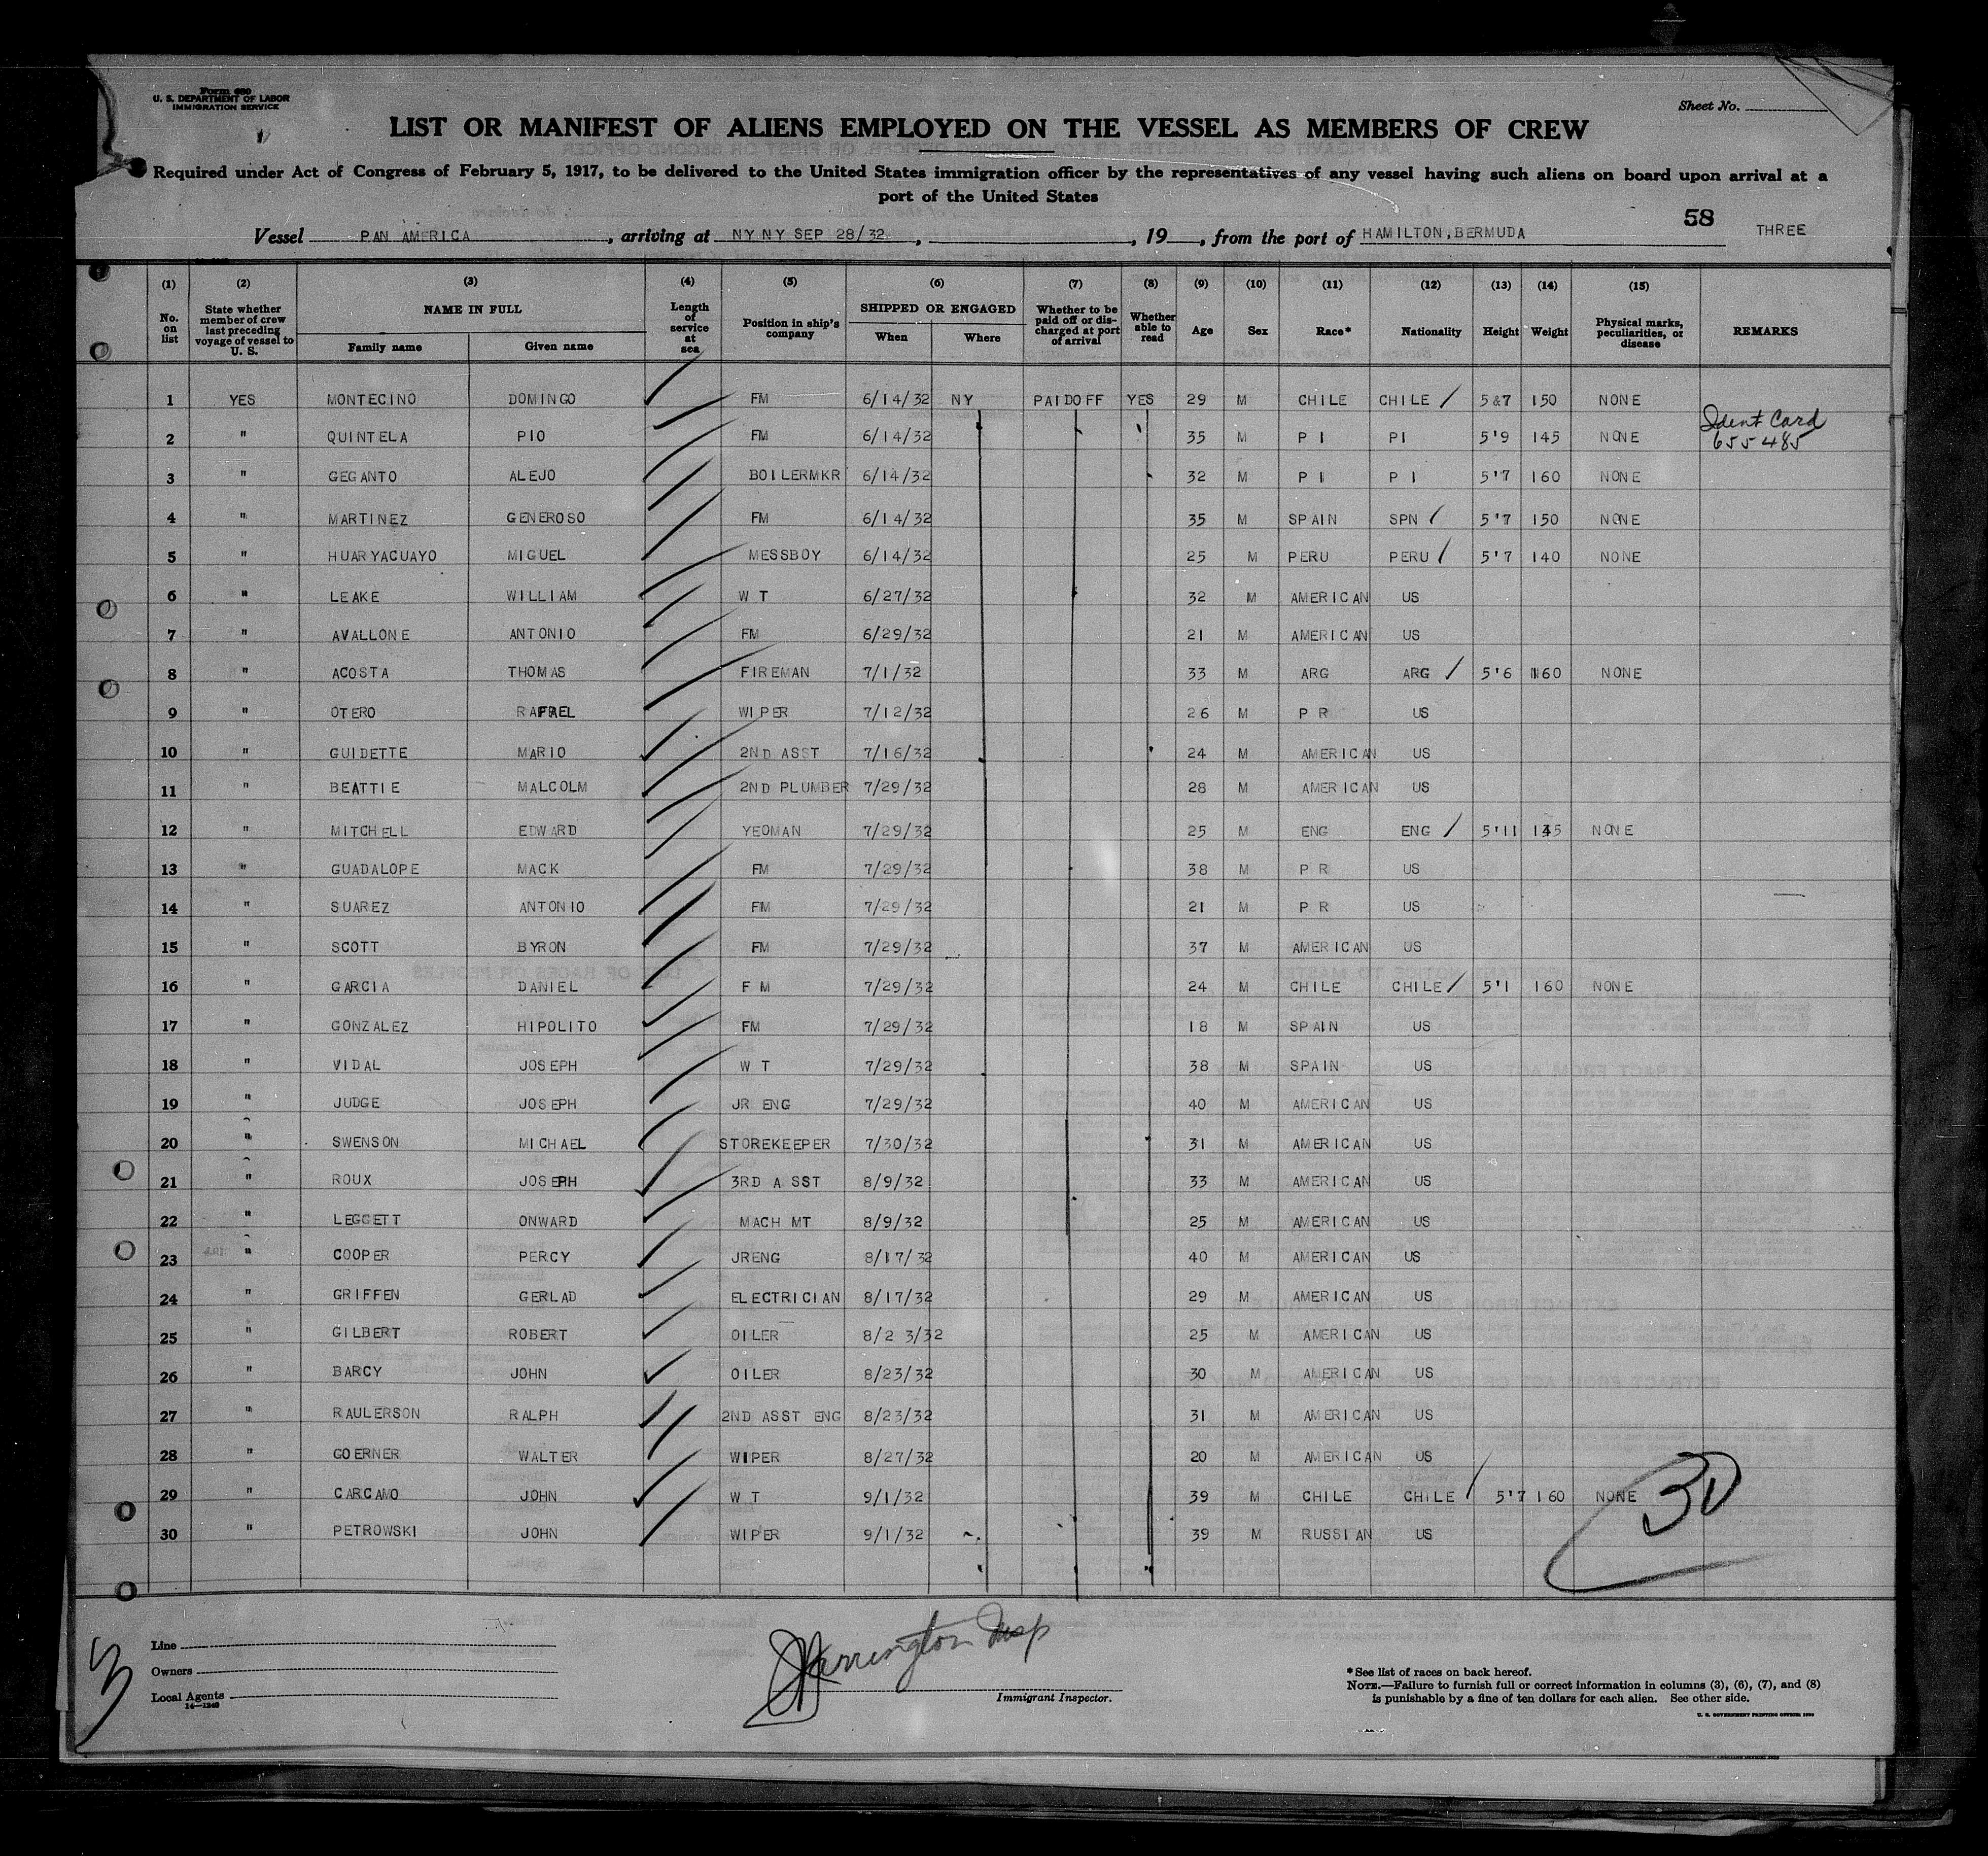 Form 680
U. S. DEPARTMENT OF LABOR
IMMIGRATION SERVICE
Sheet No.
LIST OR MANIFEST OF ALIENS EMPLOYED ON THE VESSEL AS MEMBERS OF CREW
Required under Act of Congress of February 5, 1917, to be delivered to the United States immigration officer by the representatives of any vessel having such aliens on board upon arrival at a
port of the United States
58
Vessel PAN AMERICA, arriving at NY NY SEP 28/32, , 19 , from the port of HAMILTON, BERMUDA THREE
(1) (2) (3) (4) (5) (6) (7) (8) (9) (10) (11) (12) (13) (14) (15)
No. on list State whether member of crew last preceding voyage of vessel to U. S. NAME IN FULL Family name Given name Length of service at sea Position in ship's company SHIPPED OR ENGAGED When Where Whether to be paid off or discharged at port of arrival Whether able to read Age Sex Race* Nationality Height Weight Physical marks, peculiarities, or disease REMARKS
1 YES MONTECINO DOMINGO FM 6/14/32 NY PAIDOFF YES 29 M CHILE CHILE 5&7 150 NONE
2 " QUINTELA PIO FM 6/14/32 35 M P I PI 5'9 145 NONE Ident Card 655485
3 " GEGANTO ALEJO BOILERMKR 6/14/32 32 M P I P I 5'7 160 NONE
4 " MARTINEZ GENEROSO FM 6/14/32 35 M SPAIN SPN 5'7 150 NONE
5 " HUARYACUAYO MIGUEL MESSBOY 6/14/32 25 M PERU PERU 5'7 140 NONE
6 " LEAKE WILLIAM W T 6/27/32 32 M AMERICAN US
7 " AVALLONE ANTONIO FM 6/29/32 21 M AMERICAN US
8 " ACOSTA THOMAS FIREMAN 7/1/32 33 M ARG ARG 5'6 160 NONE
9 " OTERO RAFAEL WIPER 7/12/32 26 M P R US
10 " GUIDETTE MARIO 2ND ASST 7/16/32 24 M AMERICAN US
11 " BEATTIE MALCOLM 2ND PLUMBER 7/29/32 28 M AMERICAN US
12 " MITCHELL EDWARD YEOMAN 7/29/32 25 M ENG ENG 5'11 NONE
13 " GUADALOPE MACK FM 7/29/32 38 M P R US
14 " SUAREZ ANTONIO FM 7/29/32 21 M P R US
15 " SCOTT BYRON FM 7/29/32 37 M AMERICAN US
16 " GARCIA DANIEL F M 7/29/32 24 M CHILE CHILE 5'1 160 NONE
17 " GONZALEZ HIPOLITO FM 7/29/32 18 M SPAIN US
18 " VIDAL JOSEPH W T 7/29/32 38 M SPAIN US
19 " JUDGE JOSEPH JR ENG 7/29/32 40 M AMERICAN US
20 " SWENSON MICHAEL STOREKEEPER 7/30/32 31 M AMERICAN US
21 " ROUX JOSEPH 3RD A SST 8/9/32 33 M AMERICAN US
22 " LEGGETT ONWARD MACH MT 8/9/32 25 M AMERICAN US
23 " COOPER PERCY JRENG 8/17/32 40 M AMERICAN US
24 " GRIFFEN GERLAD ELECTRICIAN 8/17/32 29 M AMERICAN US
25 " GILBERT ROBERT OILER 8/2 3/32 25 M AMERICAN US
26 " BARCY JOHN OILER 8/23/32 30 M AMERICAN US
27 " RAULERSON RALPH 2ND ASST ENG 8/23/32 31 M AMERICAN US
28 " GOERNER WALTER WIPER 8/27/32 20 M AMERICAN US
29 " CARCAMO JOHN W T 9/1/32 39 M CHILE CHILE 5'7 160 NONE
30 " PETROWSKI JOHN WIPER 9/1/32 39 M RUSSIAN US
30
Line
Owners
Local Agents
14—1240
3
Harrington Insp
Immigrant Inspector.
*See list of races on back hereof.
NOTE.—Failure to furnish full or correct information in columns (3), (6), (7), and (8)
is punishable by a fine of ten dollars for each alien. See other side.
U. S. GOVERNMENT PRINTING OFFICE: